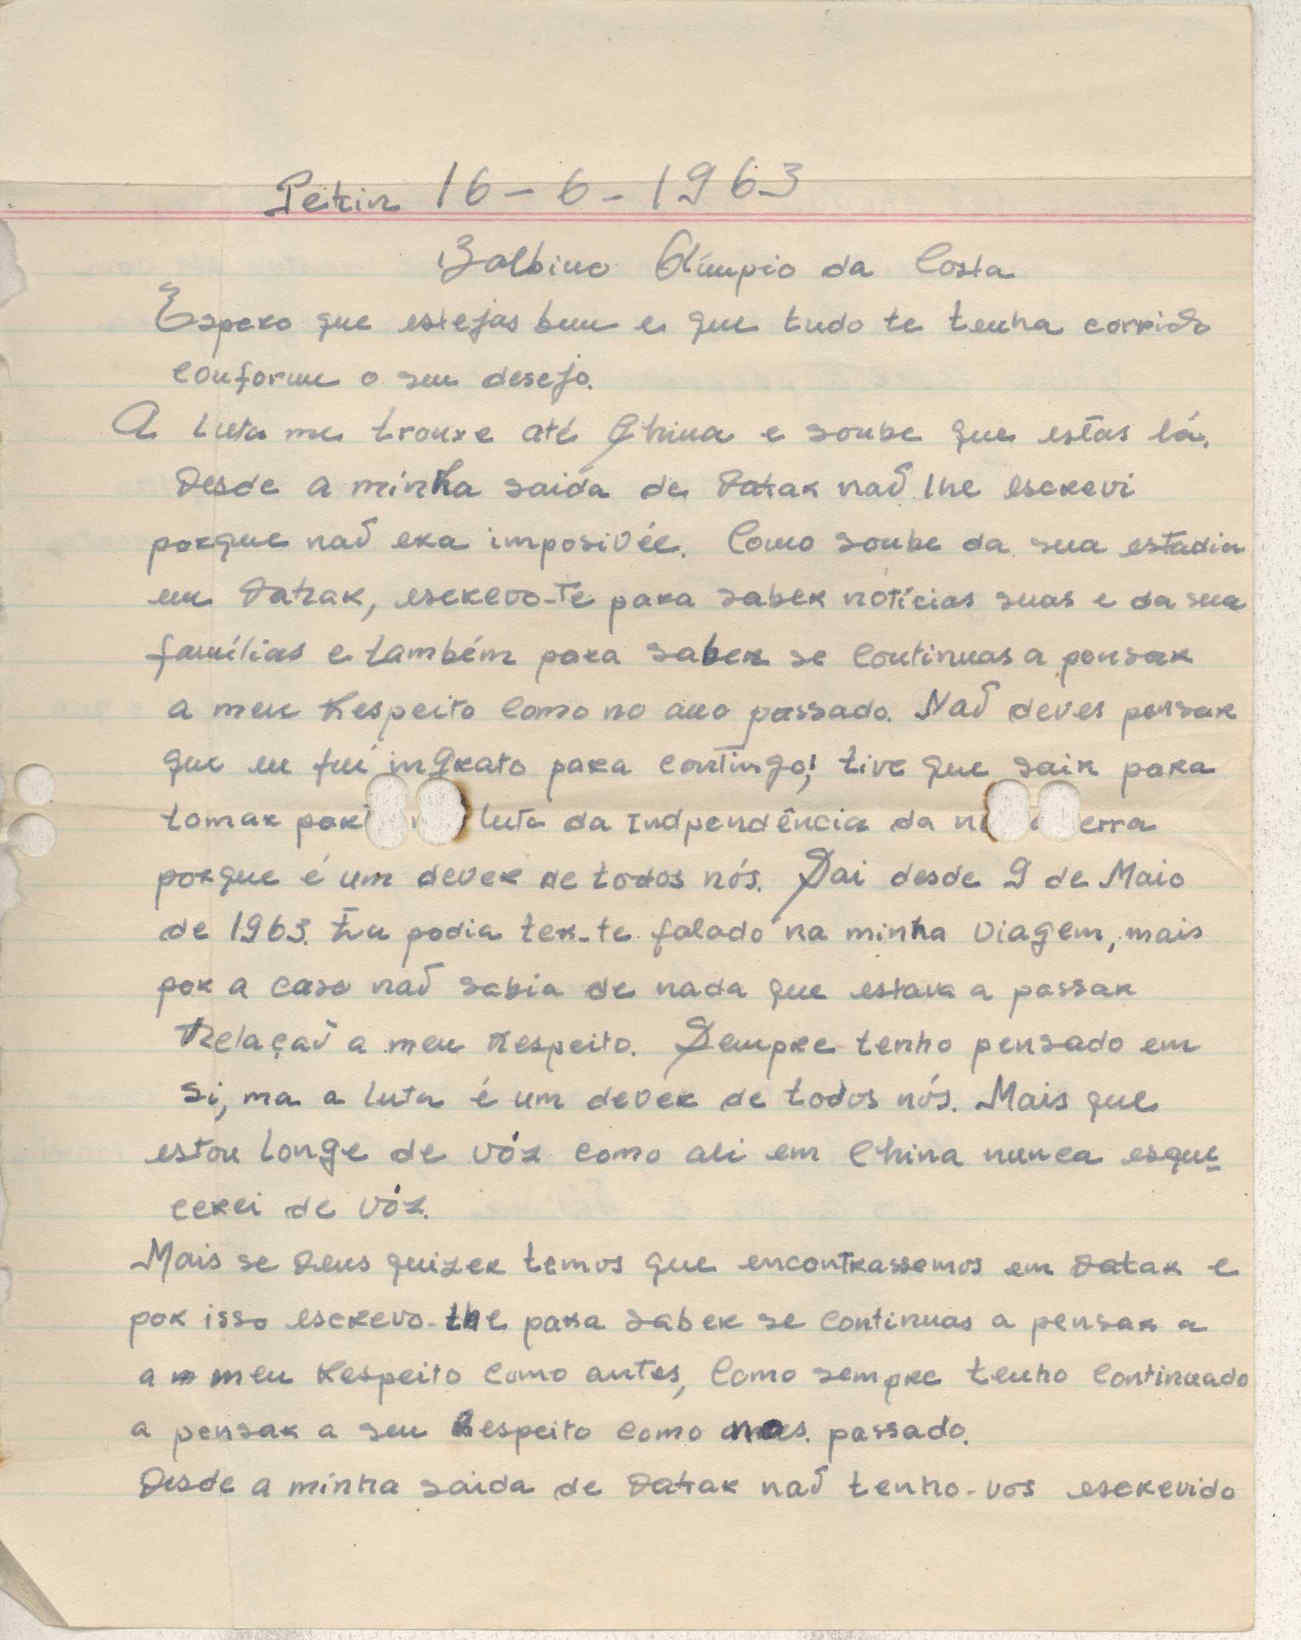 Pekin 16-6-1963
Balbino Olímpio da Costa
Espero que estejas bem e que tudo te tenha corrido
conforme o seu desejo.
A luta me trouxe até China e soube que estás lá.
Desde a minha saida de Dakar naõ lhe escrevi
porque naõ era imposivél. Como soube da sua estadia
em Dakar, escrevo-te para saber notícias suas e da sua
famílias e também para saber se continuas a pensar
a meu respeito como no ano passado. Naõ deves pensar
que eu fui ingrato para contingo, tive que sair para
tomar luta da Indpendência da
porque é um dever de todos nós. Sai desde 9 de Maio
de 1963. Eu podia ter-te falado na minha viagem, mais
por a caso naõ sabia de nada que estava a passar
Relaçaõ a meu respeito. Sempre tenho pensado em
si, ma a luta é um dever de todos nós. Mais que
estou longe de vóz como ali em China nunca esque
cerei de vóz.
Mais se Deus quizer temos que encontrassemos em Dakar e
por isso escrevo-lhe para saber se continuas a pensar a
a meu respeito como antes, como sempre tenho continuado
a pensar a seu respeito como passado.
Desde a minha saida de Dakar naõ tenho-vos escrevido